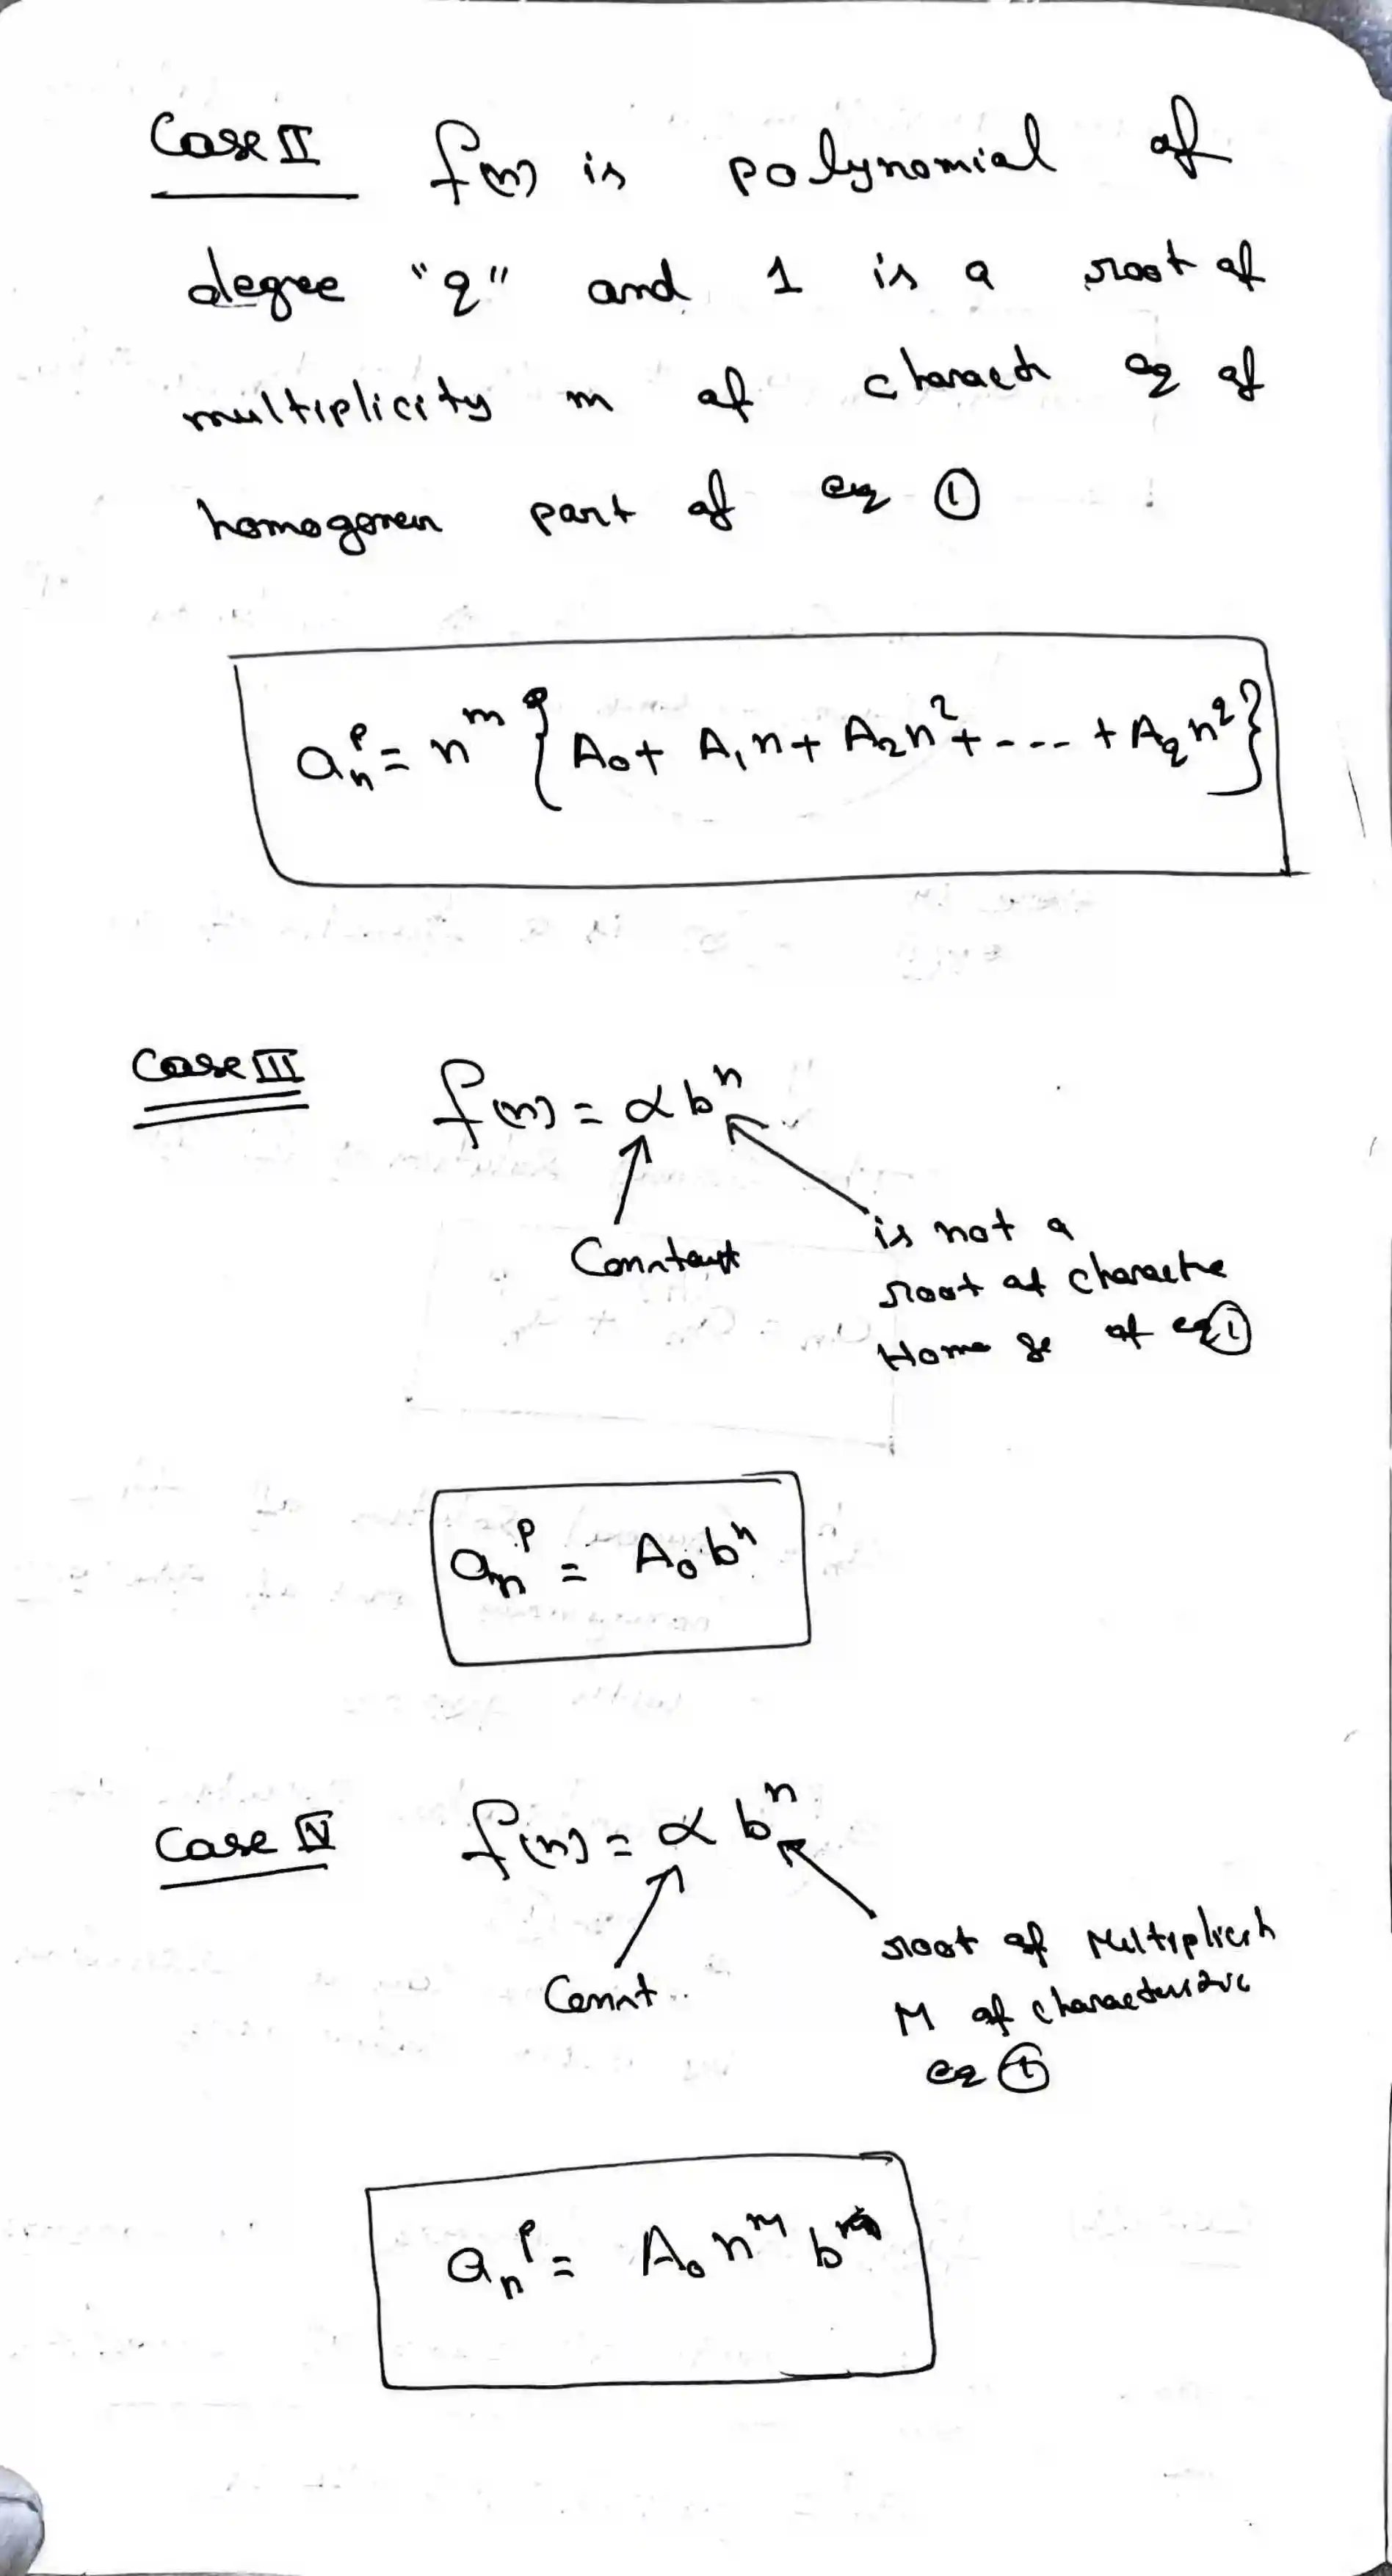 Case II f(n) is polynomial of
degree "q" and 1 is a root of
multiplicity m of charact eq of
homogenen part of eq ①
aₙᵖ = nᵐ { A₀ + A₁n + A₂n² + --- + A_q n^q }
Case III f(n) = α bⁿ
Constant
is not a
root of characte
Homo ge of eq ①
aₙᵖ = A₀ bⁿ
Case IV f(n) = α bⁿ
Const..
root of Multiplicit
M of characteristic
eq ①
aₙᵖ = A₀ n^M bⁿ